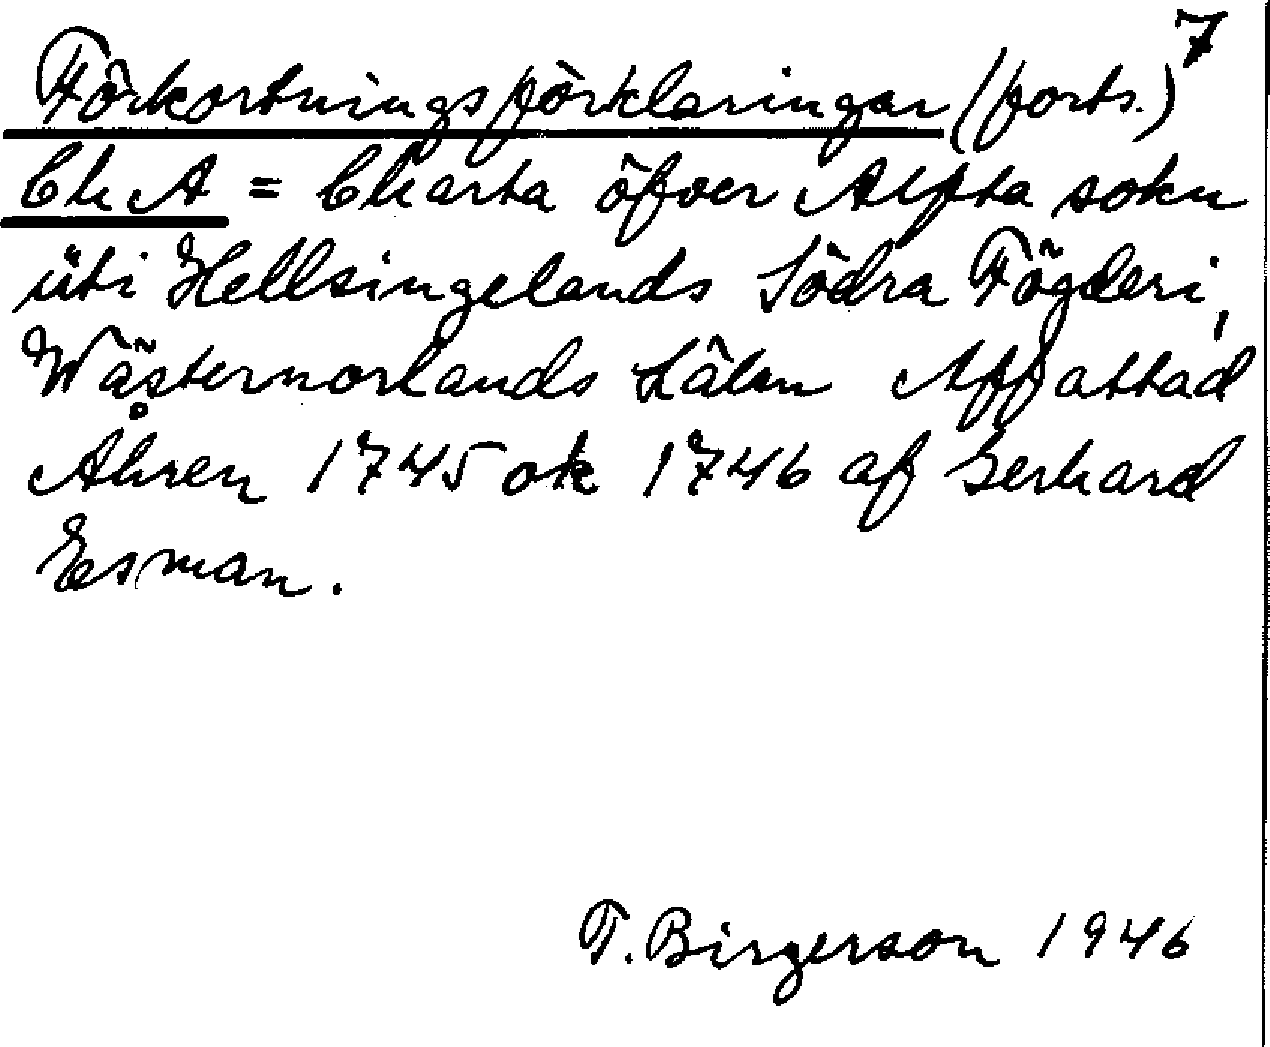 7
Förkortningsförklaringar (forts.)
Ch A = Charta öfver Alfta sokn
uti Hellsingelands Södra Fögderi,
Wästernorlands Lähn Affattad
Åhren 1745 ok 1746 af Gerhard
Eesman.
T. Birgerson 1946